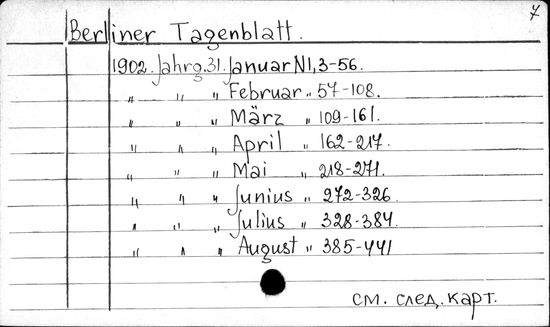 7
Berliner Tagenblatt.
1902. Jahrg. 31. Januar N1,3-56.
" " " Februar " 57-108.
" " " März " 109-161.
" " " April " 162-217.
" " " Mai " 218-271.
" " " Junius " 272-326
" " " Julius " 328-384.
" " " August " 385-441
см. след. карт.